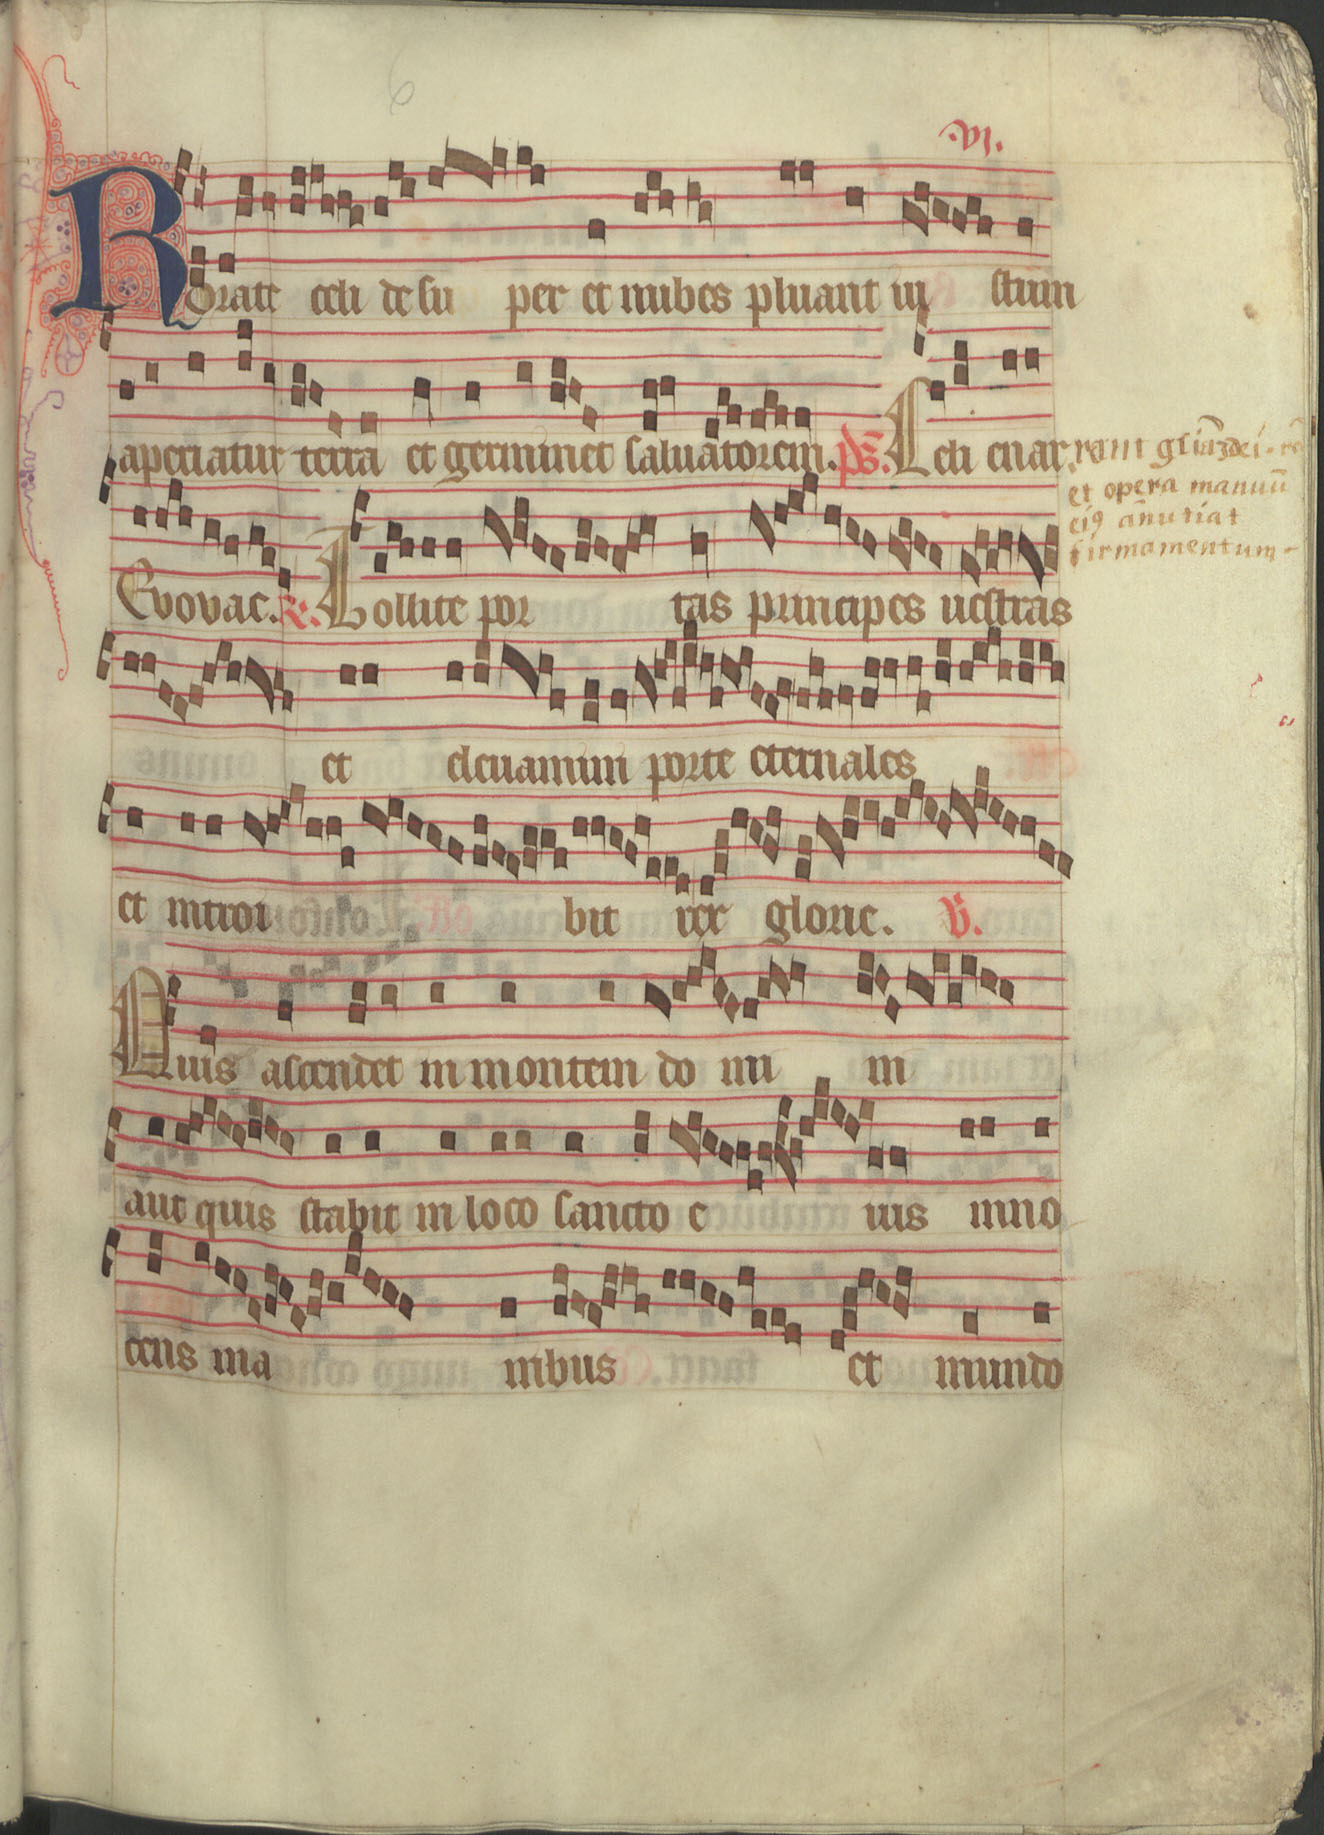 6
.VI.
Rorate celi desu per et nubes pluant iu stum
aperiatur terra et germinet saluatorem. ps. Celi enar
rant gl̄iaz dei.
et opera manuū
ei9 ān̄utiat
firmamentum
Evovae. R. Tollite por tas principes uestras
et eleuamini porte eternales
et introi bit rex glorie. V.
Quis ascendet in montem do mi ni
aut quis stabit in loco sancto e ius inno
cens ma nibus et mundo